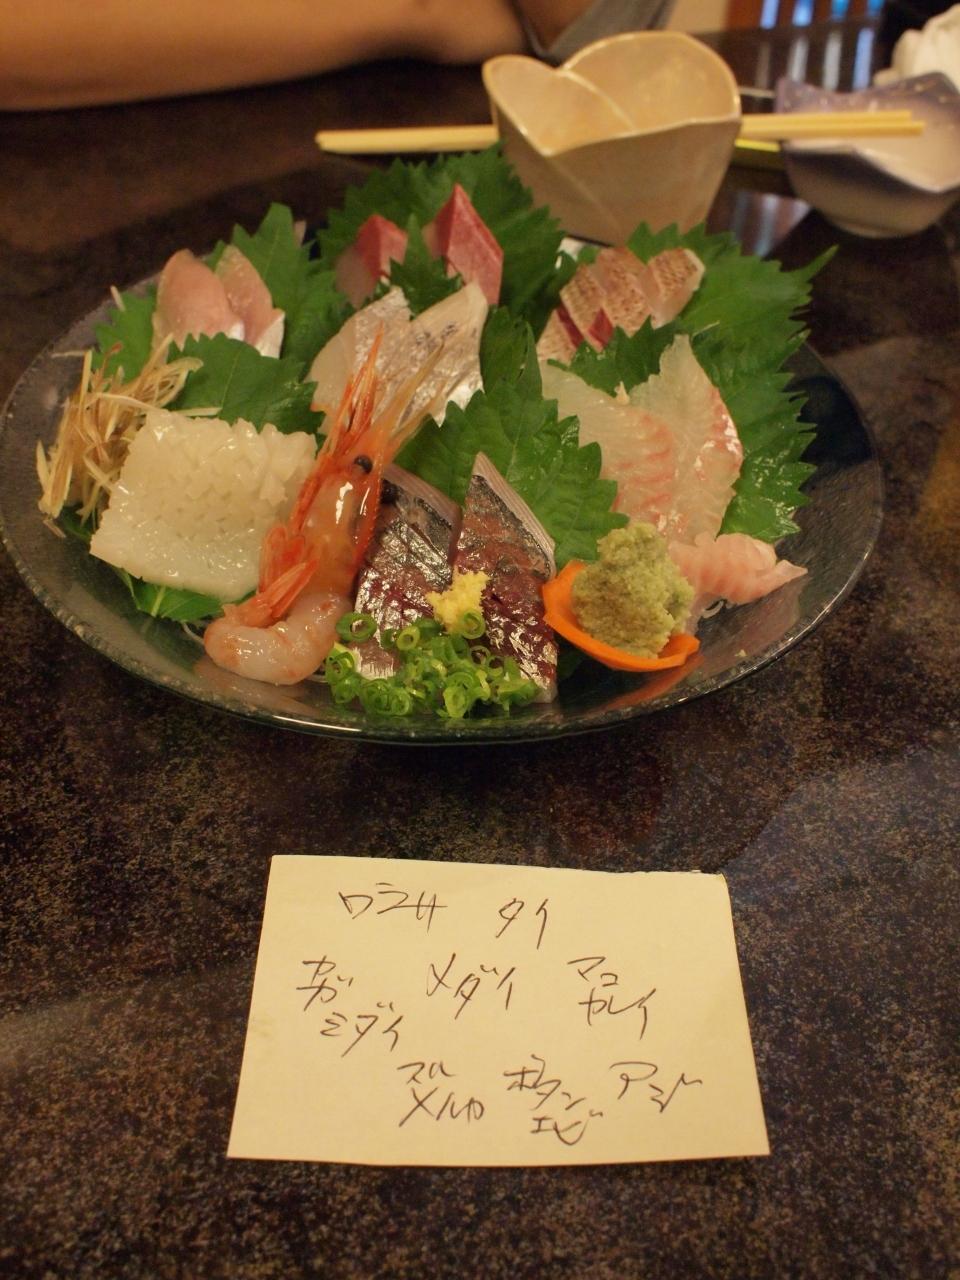 ワラサ タイ
カガミダイ メダイ マコカレイ
スルメイカ ボタンエビ アジ